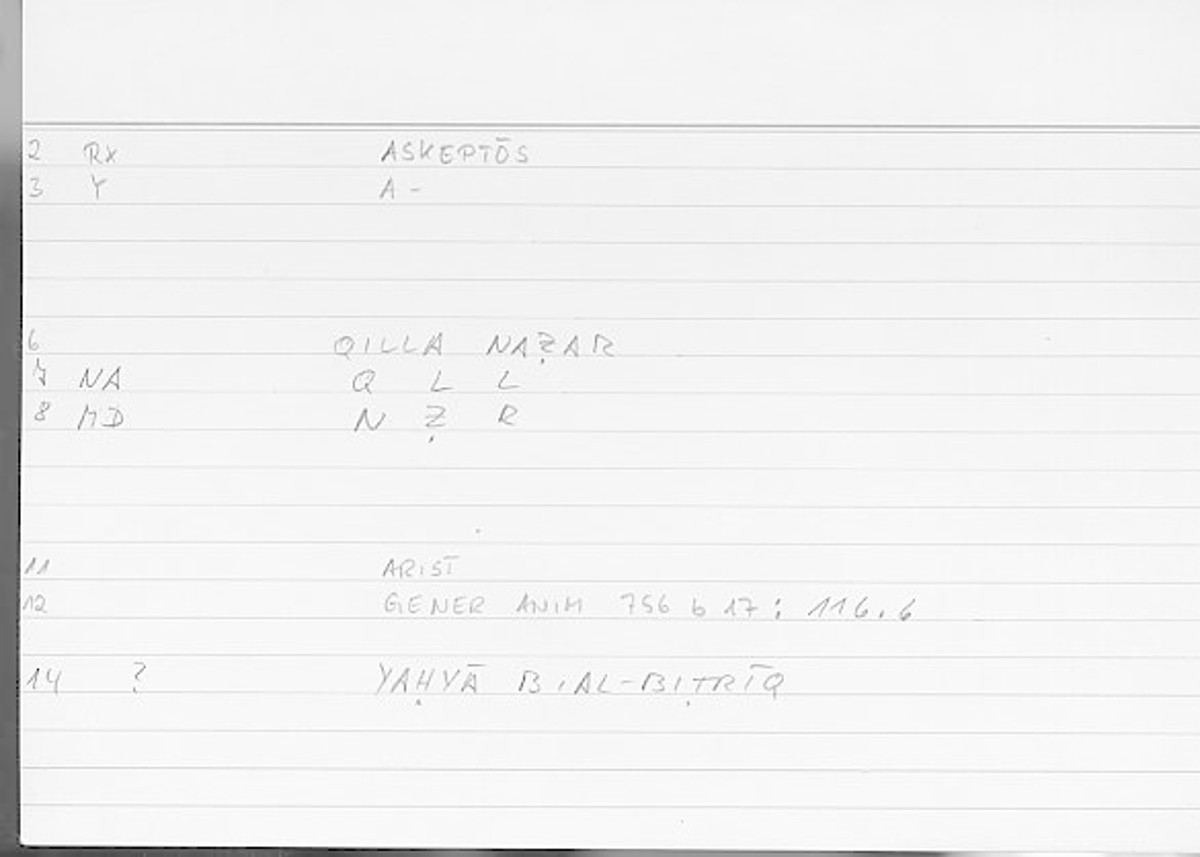 2 RX ASKEPTŌS
3 Y A -
6 QILLA NAẒAR
7 NA Q L L
8 MD N Ẓ R
11 ARIST
12 GENER ANIM 756 b 17 : 116.6
14 ? YAḤYĀ B. AL-BIṬRĪQ